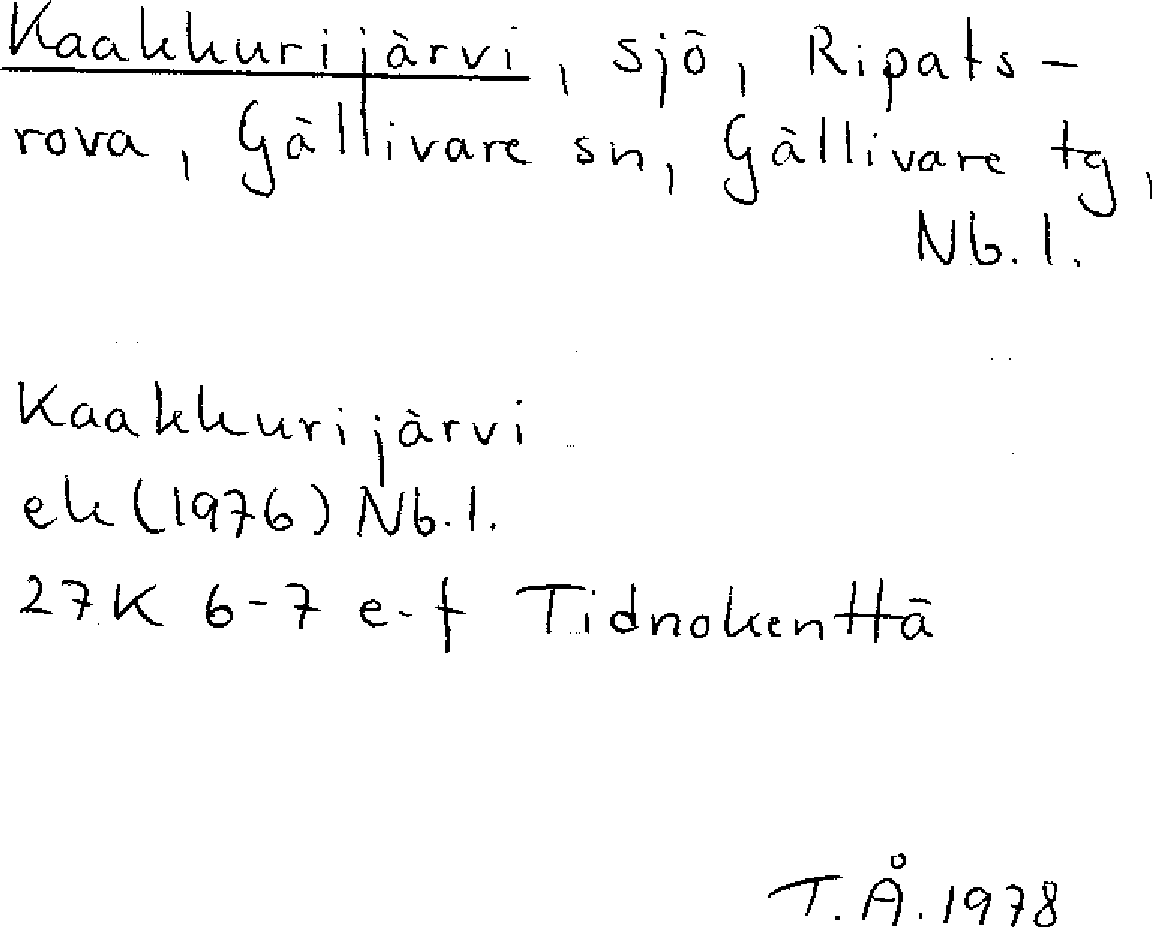 Kaakkurijärvi, sjö, Ripats-
rova, Gällivare sn, Gällivare tg,
Nb. l.
Kaakkurijärvi
ek (1976) Nb. l.
27K 6-7 e-f Tidnokenttä
T. Å. 1978